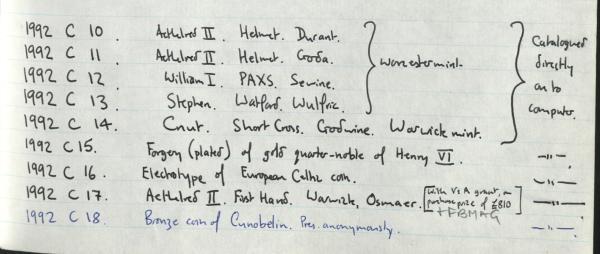 1992 C 10. Aethelred II. Helmet. Durant.
1992 C 11. Aethelred II. Helmet. Goda.
1992 C 12. William I. PAXS. Sewine.
1992 C 13. Stephen. Watford. Wulfric.
Worcester mint.
1992 C 14. Cnut. Short Cross. Godwine. Warwick mint.
Catalogued
directly
on to
computer.
1992 C 15. Forgery (plated) of gold quarter-noble of Henry VI. —"—.
1992 C 16. Electrotype of European Celtic coin. —"—
1992 C 17. Aethelred II. First Hand. Warwick, Osmaer. [With V&A grant, on purchase price of £810 + FBMAG] —"—
1992 C 18. Bronze coin of Cunobelin. Pres. anonymously. —"—.